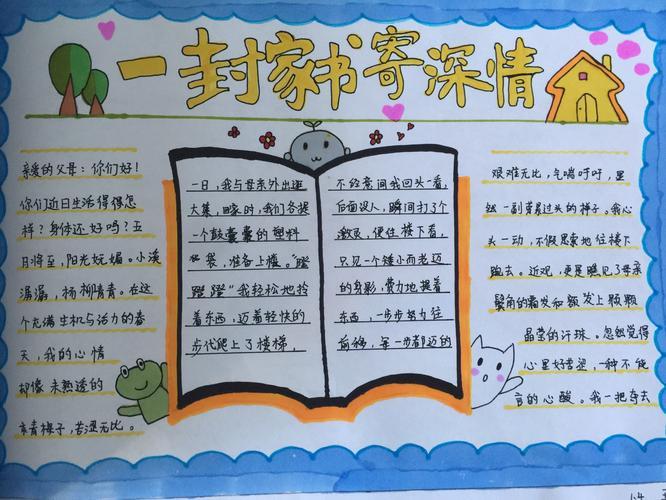 一封家书寄深情
亲爱的父母：你们好！
你们近日生活得得怎
样？身体还好吗？五
日将至，阳光妩媚。小溪
潺潺，杨柳青青。在这
个充满生机与活力的春
天，我的心情
却像未熟透的
青梅子，苦涩无比。
一日，我与母亲外出逛
大集，回家时，我们各提
一个鼓囊囊的塑料
袋，准备上楼。"蹬
蹬蹬"我轻松地拎
着东西，迈着轻快的
步伐爬上了楼梯，
不经意间我回头一看，
后面没人，瞬间打了个
激灵，便往楼下看，
只见一个矮小而老迈
的身影，费力地提着
东西，一步步努力往
前移，每一步都迈的
艰难无比，气喘吁吁，里
然一副劳累过头的样子。我心
头一动，不假思索地往楼下
跑去。近观，更是瞧见了母亲
鬓角的霜发和额发上颗颗
晶莹的汗珠。忽然觉得
心里好苦涩，一种不能
言的心酸。我一把夺去